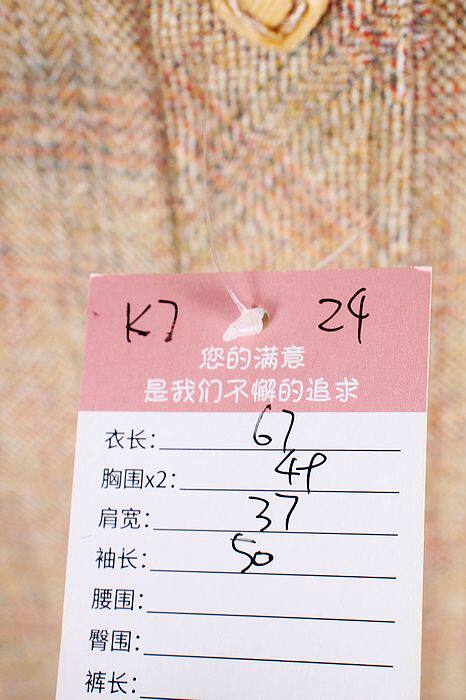 K7 24
您的满意
是我们不懈的追求
衣长: 67
胸围x2: 49
肩宽: 37
袖长: 50
腰围:
臀围:
裤长: